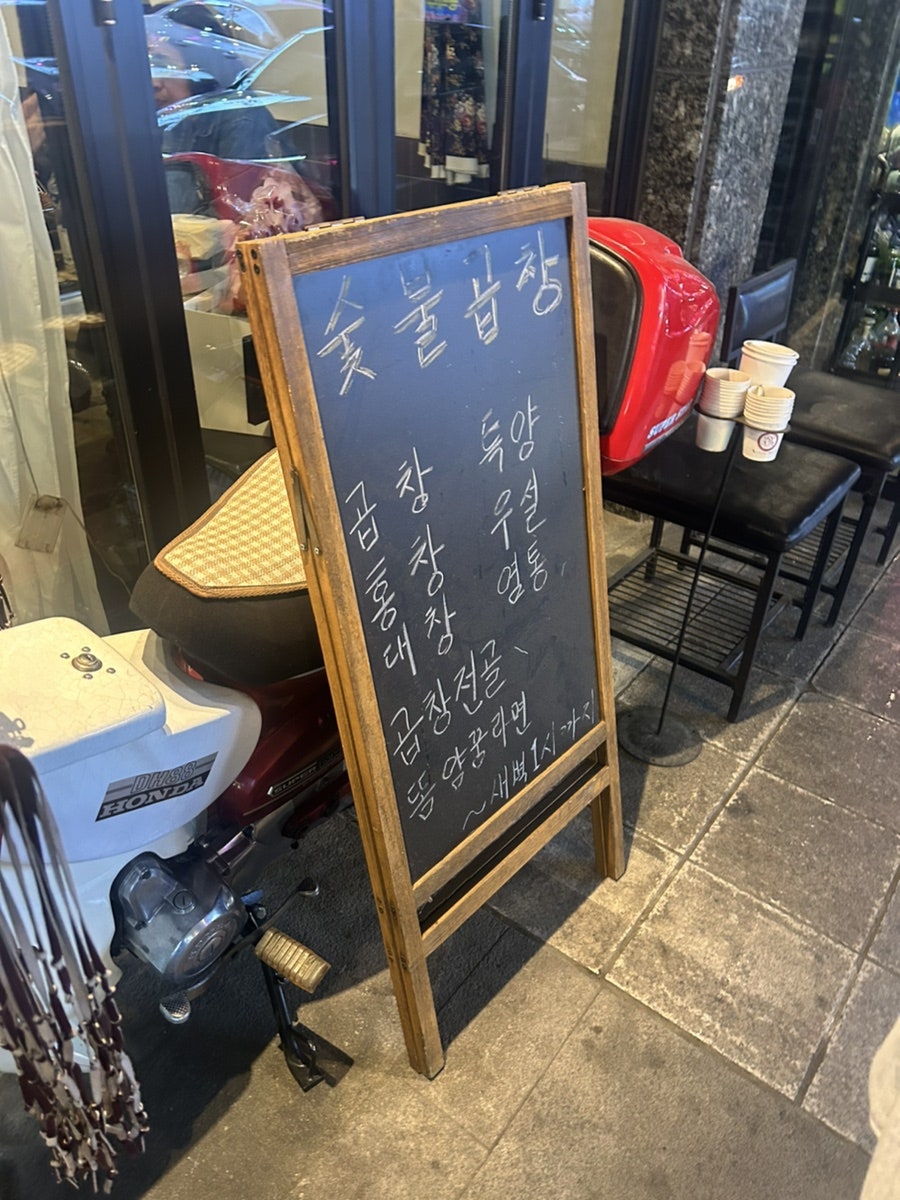 숯불곱창
곱창 특양
홍창 우설
대창 염통
곱창전골
뜸양꿍라면
~새벽1시까지
DH88
HONDA
SUPER